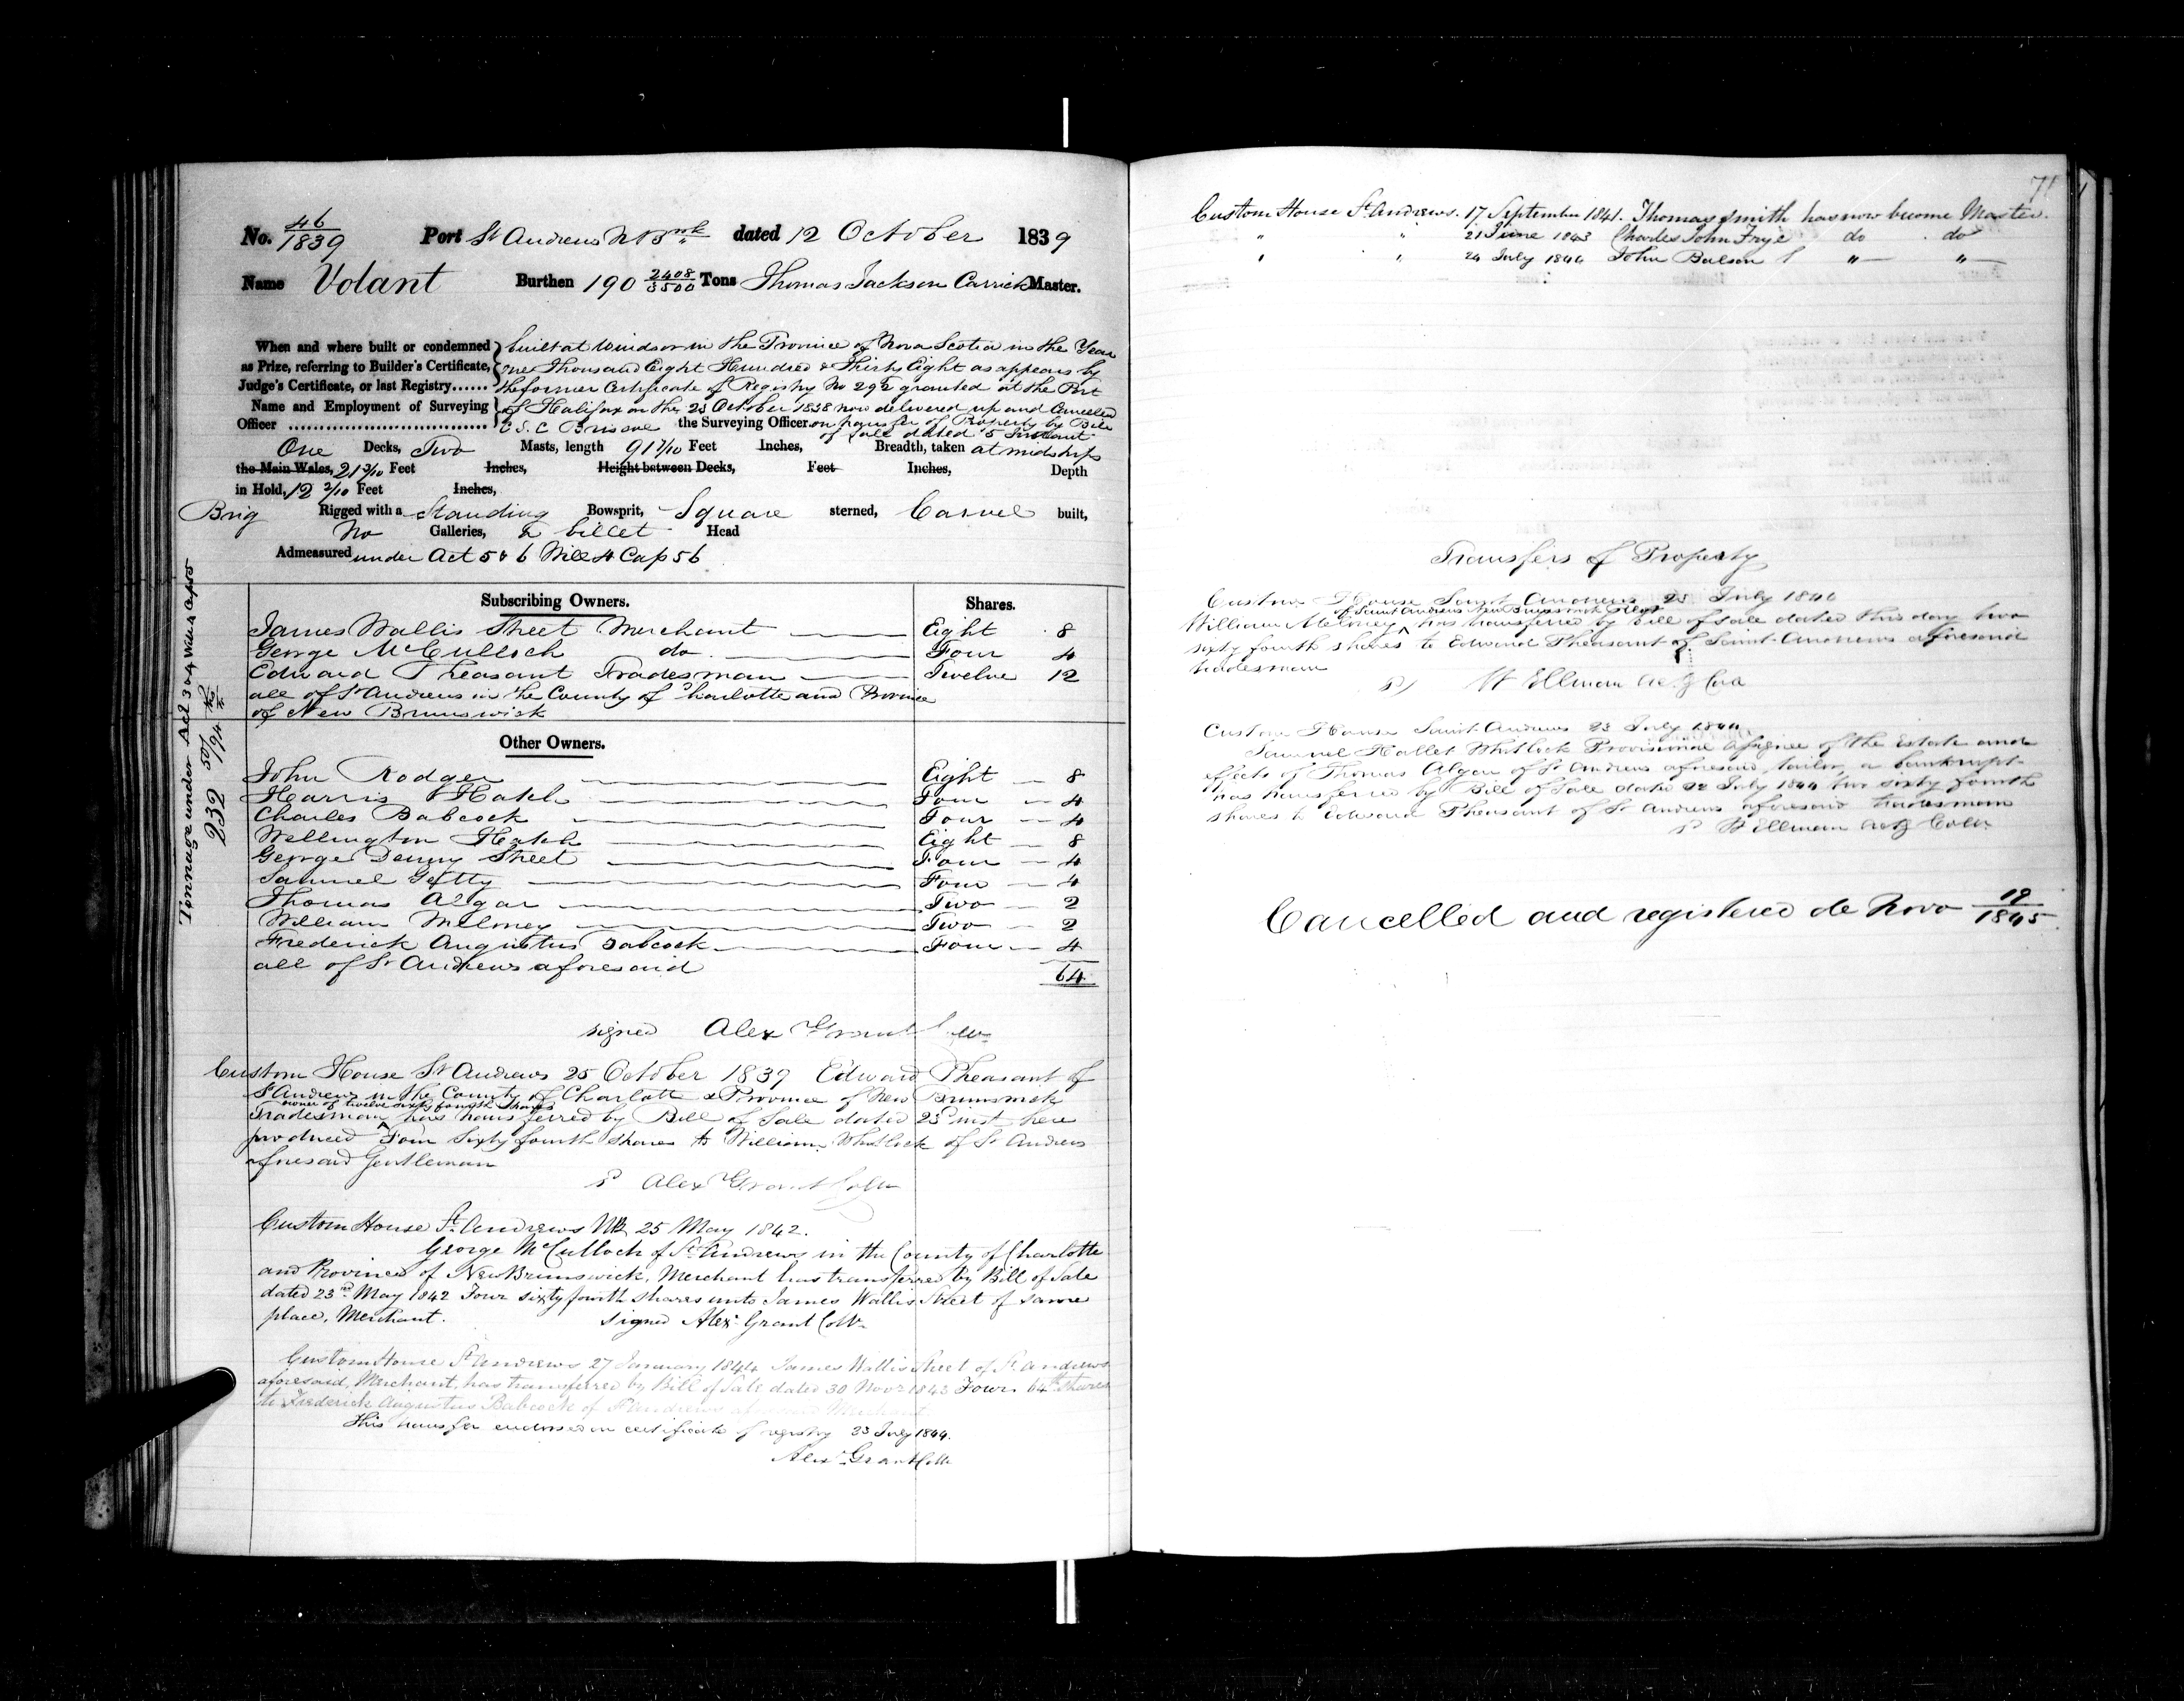 No. 46/1839 Port St Andrews N Bwk dated 12 October 1839
Name Volant Burthen 190 2408/3500 Tons Thomas Jackson Carrick Master.
When and where built or condemned built at Windsor in the Province of Nova Scotia in the Year
as Prize, referring to Builder's Certificate, one Thousand Eight Hundred & Thirty Eight as appears by
Judge's Certificate, or last Registry...... the former Certificate of Registry No 292 granted at the Port
Name and Employment of Surveying of Halifax on the 23 October 1838 now delivered up and Cancelled
Officer ................................ C S. C Briscoe the Surveying Officer on transfer of Property by Bill
of Sale dated 5 Instant
One Decks, Two Masts, length 91 7/10 Feet Inches, Breadth, taken at midships
the Main Wales, 21 3/10 Feet Inches, Height between Decks, Feet Inches, Depth
in Hold, 12 2/10 Feet Inches,
Brig Rigged with a Standing Bowsprit, Square sterned, Carvel built,
No Galleries, & billet Head
Admeasured under Act 5 & 6 Will 4 Cap 56
Tonnage under Act 3 & 4 Will 4 Cap 55
232 50/94
Subscribing Owners. Shares.
James Wallis Street Merchant Eight 8
George McCulloch do. Four 4
Edward Pheasant Tradesman Twelve 12
all of St Andrews in the County of Charlotte and Province
of New Brunswick
Other Owners.
John Rodger Eight 8
Harris Hatch Four 4
Charles Babcock Four 4
Wellington Hatch Eight 8
George Denny Street Four 4
Samuel Getty Four 4
Thomas Algar Two 2
William Meloney Two 2
Frederick Augustus Babcock Four 4
all of St Andrews aforesaid
64
signed Alex Grant Collr
Custom House St Andrews 25 October 1839 Edward Pheasant of
St Andrews in the County of Charlotte & Province of New Brunswick
owner of twelve sixty fourth shares
Tradesman has transferred by Bill of Sale dated 23d inst here
produced Four Sixty fourth shares to William Whitlock of St Andrews
aforesaid Gentleman
P Alex Grant Collr
Custom House St. Andrews NB 25 May 1842.
George McCulloch of St Andrews in the County of Charlotte
and Province of New Brunswick, Merchant has transferred by Bill of Sale
dated 23rd May 1842 Four sixty fourth shares unto James Wallis Street of same
place, Merchant. signed Alexr Grant Collr
Custom House St Andrews 27 January 1844 James Wallis Street of St. Andrews
aforesaid, Merchant, has transferred by Bill of Sale dated 30 Novr 1843 Four 64th shares
to Frederick Augustus Babcock of St Andrews aforesaid Merchant
This transfer endorsed on certificate of registry 23 July 1844.
Alexr Grant Collr
71
Custom House St. Andrews. 17 September 1841. Thomas Smith has now become Master.
" " 21 June 1843 Charles John Frye do do
" " 24 July 1844 John Balson " "
Transfers of Property
Custom House Saint Andrews 23 July 1844
of Saint Andrews New Brunswick
William Meloney has transferred by Bill of sale dated this day two
sixty fourth shares to Edward Pheasant of Saint Andrews aforesaid
tradesman
P W Ellman Actg Collr
Custom House Saint Andrews 23 July 1844
Samuel Hallet Whitlock Provisional Assignee of the Estate and
effects of Thomas Algar of St Andrews aforesaid, tailor, a bankrupt
has transferred by Bill of Sale dated 22 July 1844 two sixty fourth
shares to Edward Pheasant of St Andrews aforesaid tradesman
P W Ellman Actg Collr
Cancelled and registered de Novo 19/1845